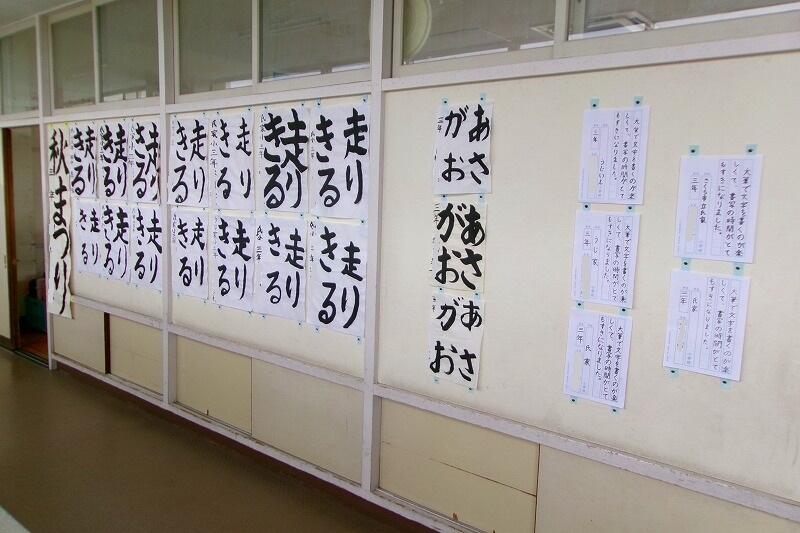 秋まつり
三年
走り
きる
走り
きる
走り
きる
走り
きる
走り
きる
走り
きる
氏家小三年
走り
きる
走り
きる
走り
きる
走り
きる
走り
きる
走り
きる
三年
走り
きる
走り
きる
あさ
がお
三年
あさ
がお
三年
あさ
がお
大筆で文字を書くのが楽
しくて、書写の時間がとて
もすきになりました。
三年
大筆で文字を書くのが楽
しくて、書写の時間がとて
もすきになりました。
三年
うじ家
大筆で文字を書くのが楽
しくて、書写の時間がとて
もすきになりました。
三年
氏家
大筆で文字を書くのが楽
しくて、書写の時間がとて
もすきになりました。
さくら市立氏家
三年
大筆で文字を書くのが楽
しくて、書写の時間がとて
もすきになりました。
二年
氏家